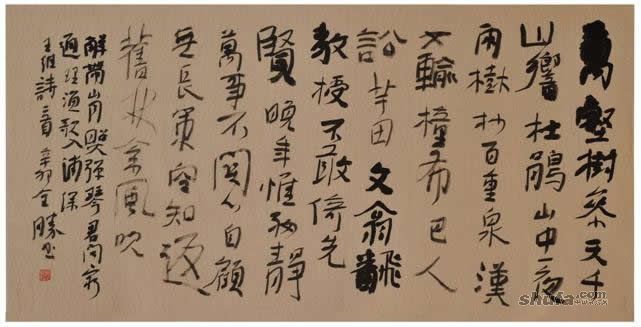 萬壑樹參天千
山響杜鵑山中一夜
雨樹杪百重泉漢
女輸橦布巴人
訟芋田文翁翻
教授不敢倚先
賢晚年惟好靜
萬事不關心自顧
無長策空知返
舊林松風吹
解帶山月照彈琴君問窮
通理漁歌入浦深
王維詩二首辛卯全勝書
shufa.com